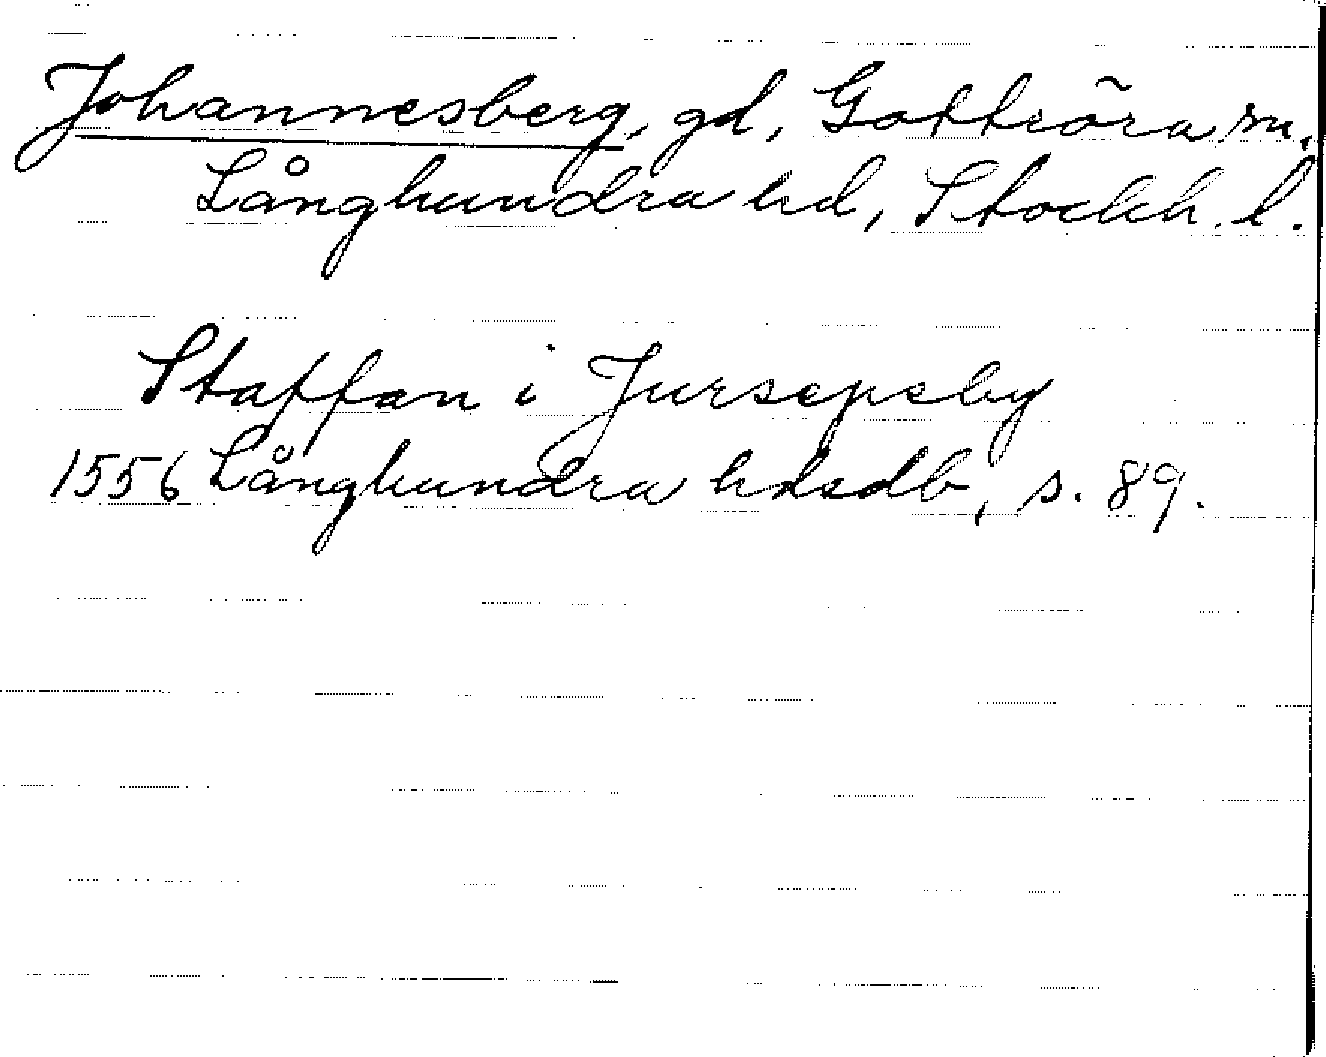 Johannesberg, gd, Gottröra sn.
Långhundra hd, Stockh. l.
Staffan i Jursepsby
1556 Långhundra hdsdb, s. 89.